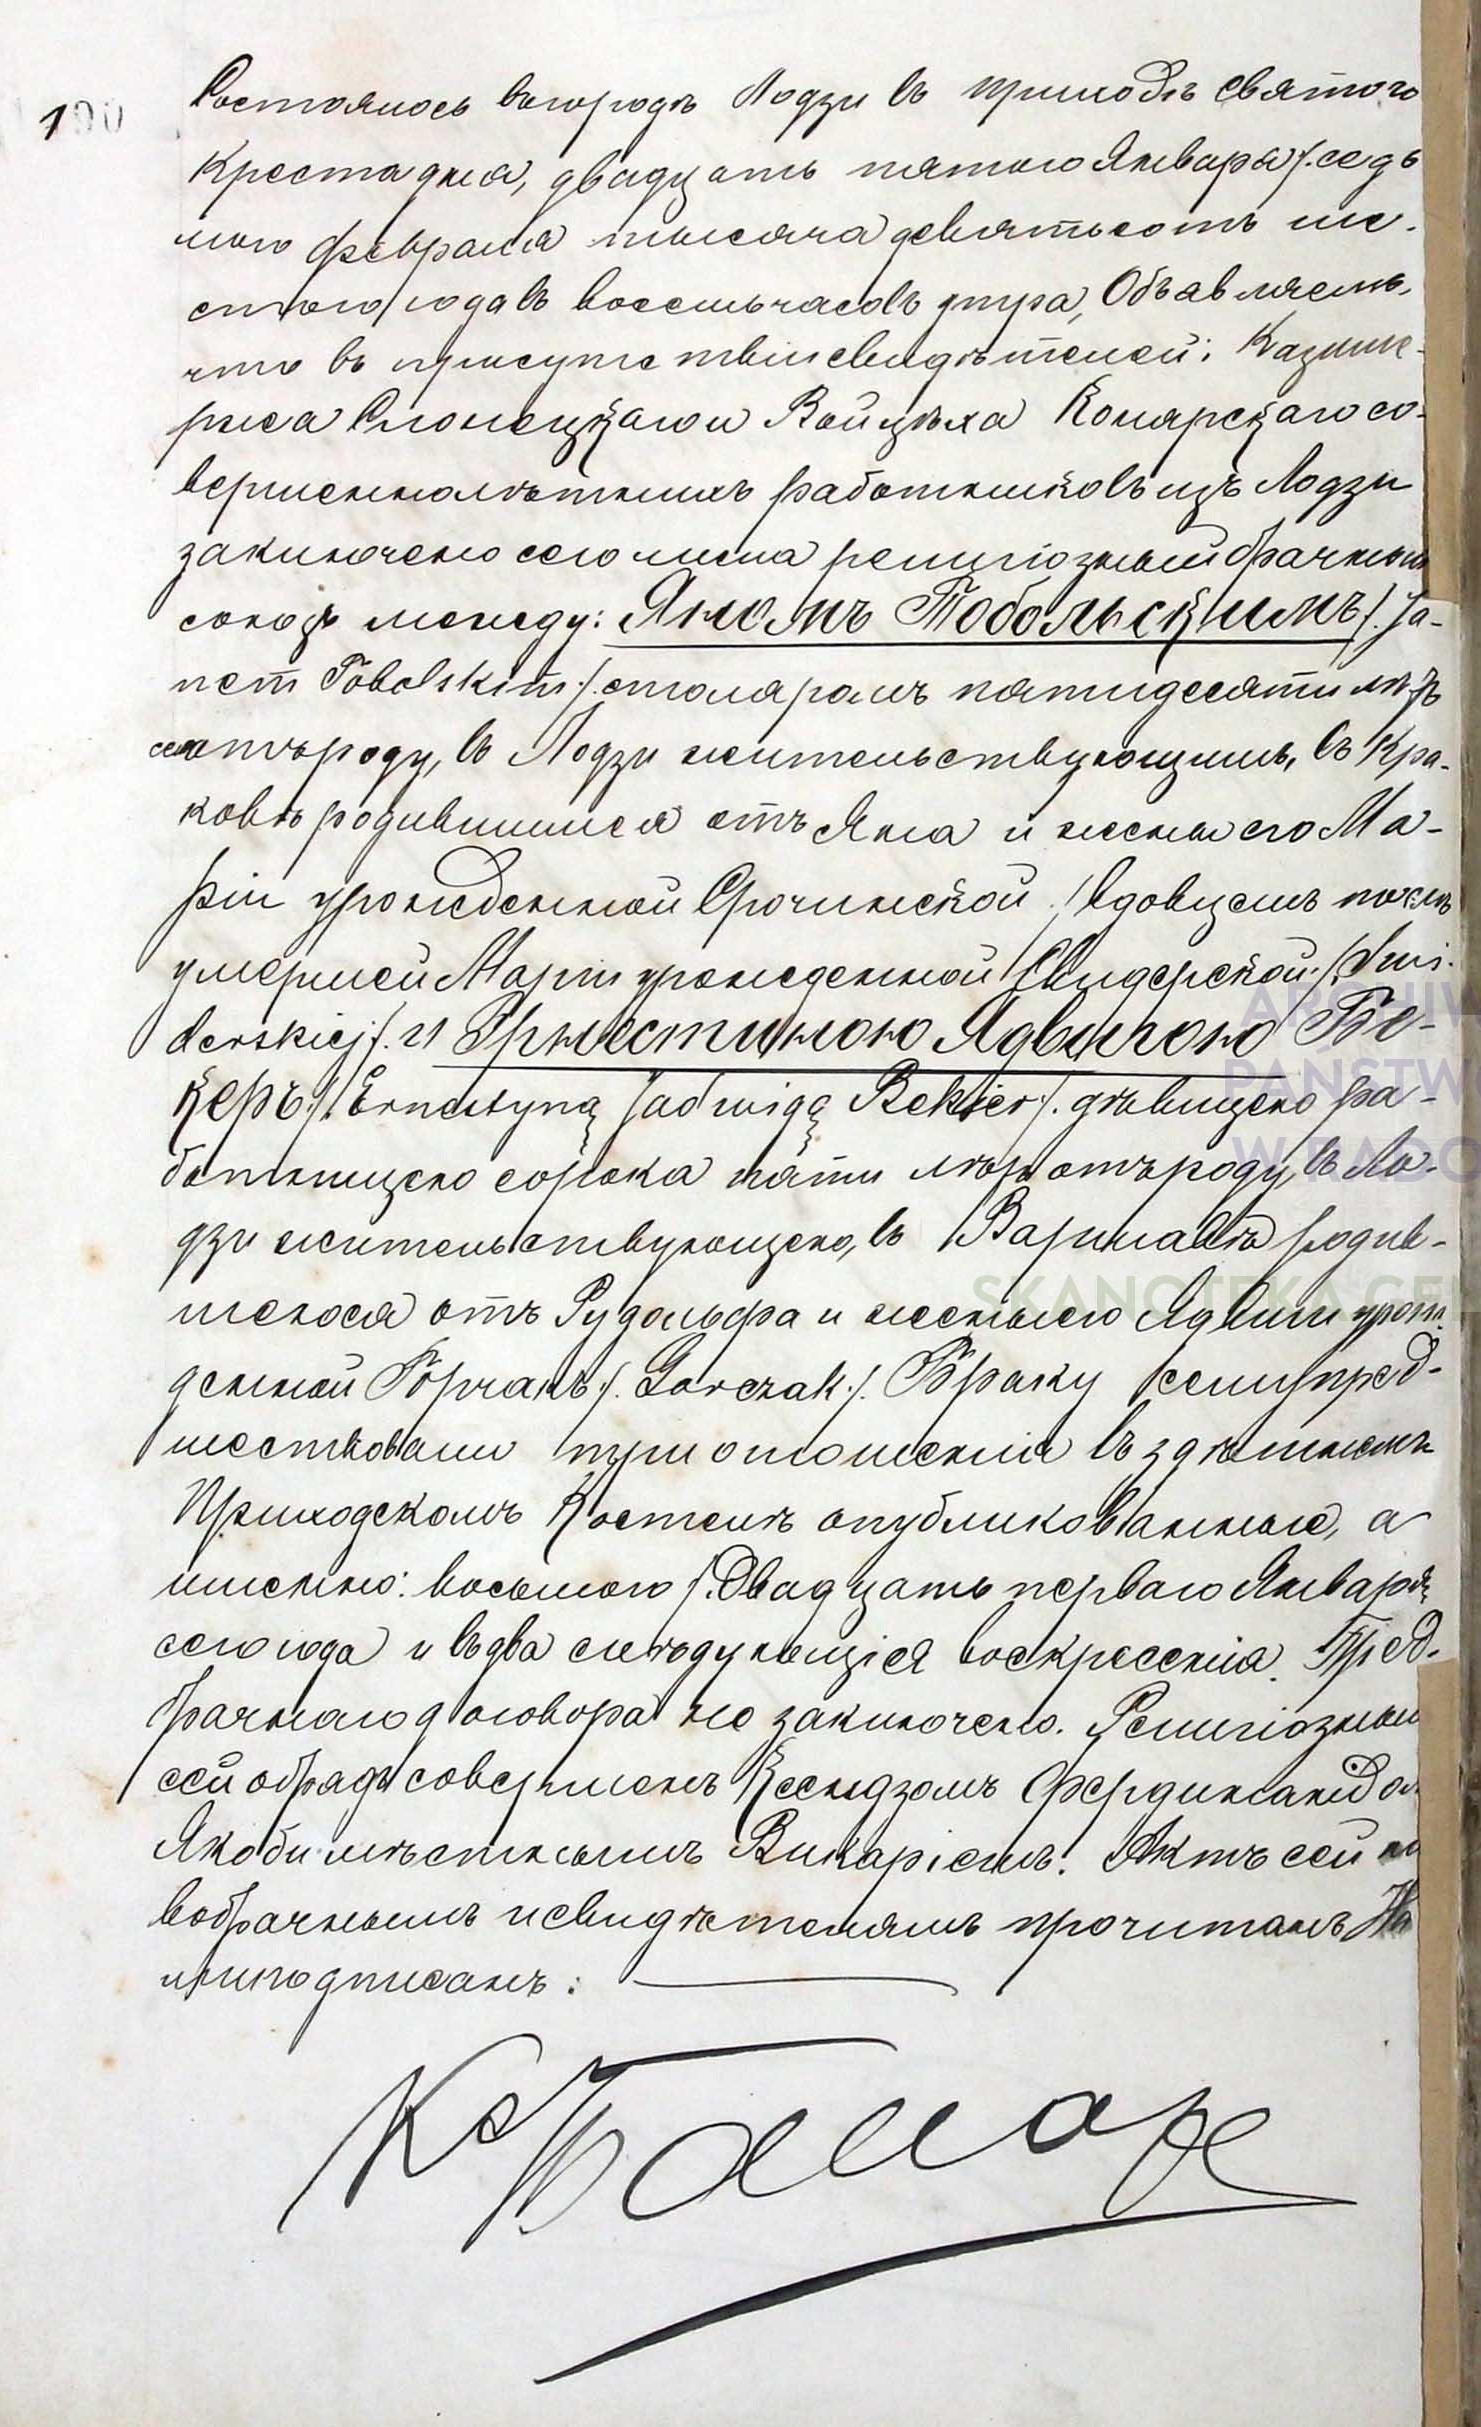 190
Состоялось въ городѣ Лодзи въ приходѣ Святого
Креста дня, двадцать пятого Января /: седь
мого Февраля тысяча девятьсотъ ше-
стого года въ восемь часовъ утра, Объявляемъ,
что въ присутствіи свидѣтелей: Казиме-
риса Слонецкаго и Войцѣха Комарскаго со-
вершеннолѣтнихъ работниковъ изъ Лодзи
заключено сего числа религіозный брачный
союзъ между: Яномъ Тобольскимъ /: Ja-
nem Tobolskim :/ столяромъ пятидесяти лѣтъ
отъ роду, въ Лодзи жительствующимъ, въ Кра-
ковѣ родившимся отъ Яна и жены его Ма-
ріи урожденной Срочинской / вдовцемъ послѣ
умершей Маріи урожденной Свидерской /: Świ-
derskiej /: и Эрнестиною Ядвигою Бе-
керъ /: Ernestyną Jadwigą Bekier :/ дѣвицею ра-
ботницею сорока пяти лѣтъ отъ роду, въ Ло-
дзи жительствующею, въ Варшавѣ родив-
шеюся отъ Рудольфа и жены его Ядвиги урож-
денной Горчакъ /: Gorczak :/ Браку сему пред-
шествовали три оглашенія въ здѣшнемъ
Приходскомъ Костелѣ опубликованные, а
именно: восьмого /: двадцать перваго Января
сего года и въ два слѣдующіся воскресенія. Пред-
брачнаго договора не заключено. Религіозный
сей обрядъ совершенъ Ксендзомъ Фердинандом
Якоби мѣстнымъ Викаріемъ. Актъ сей но
вобрачнымъ и свидѣтелямъ прочитанъ На
ми подписанъ: